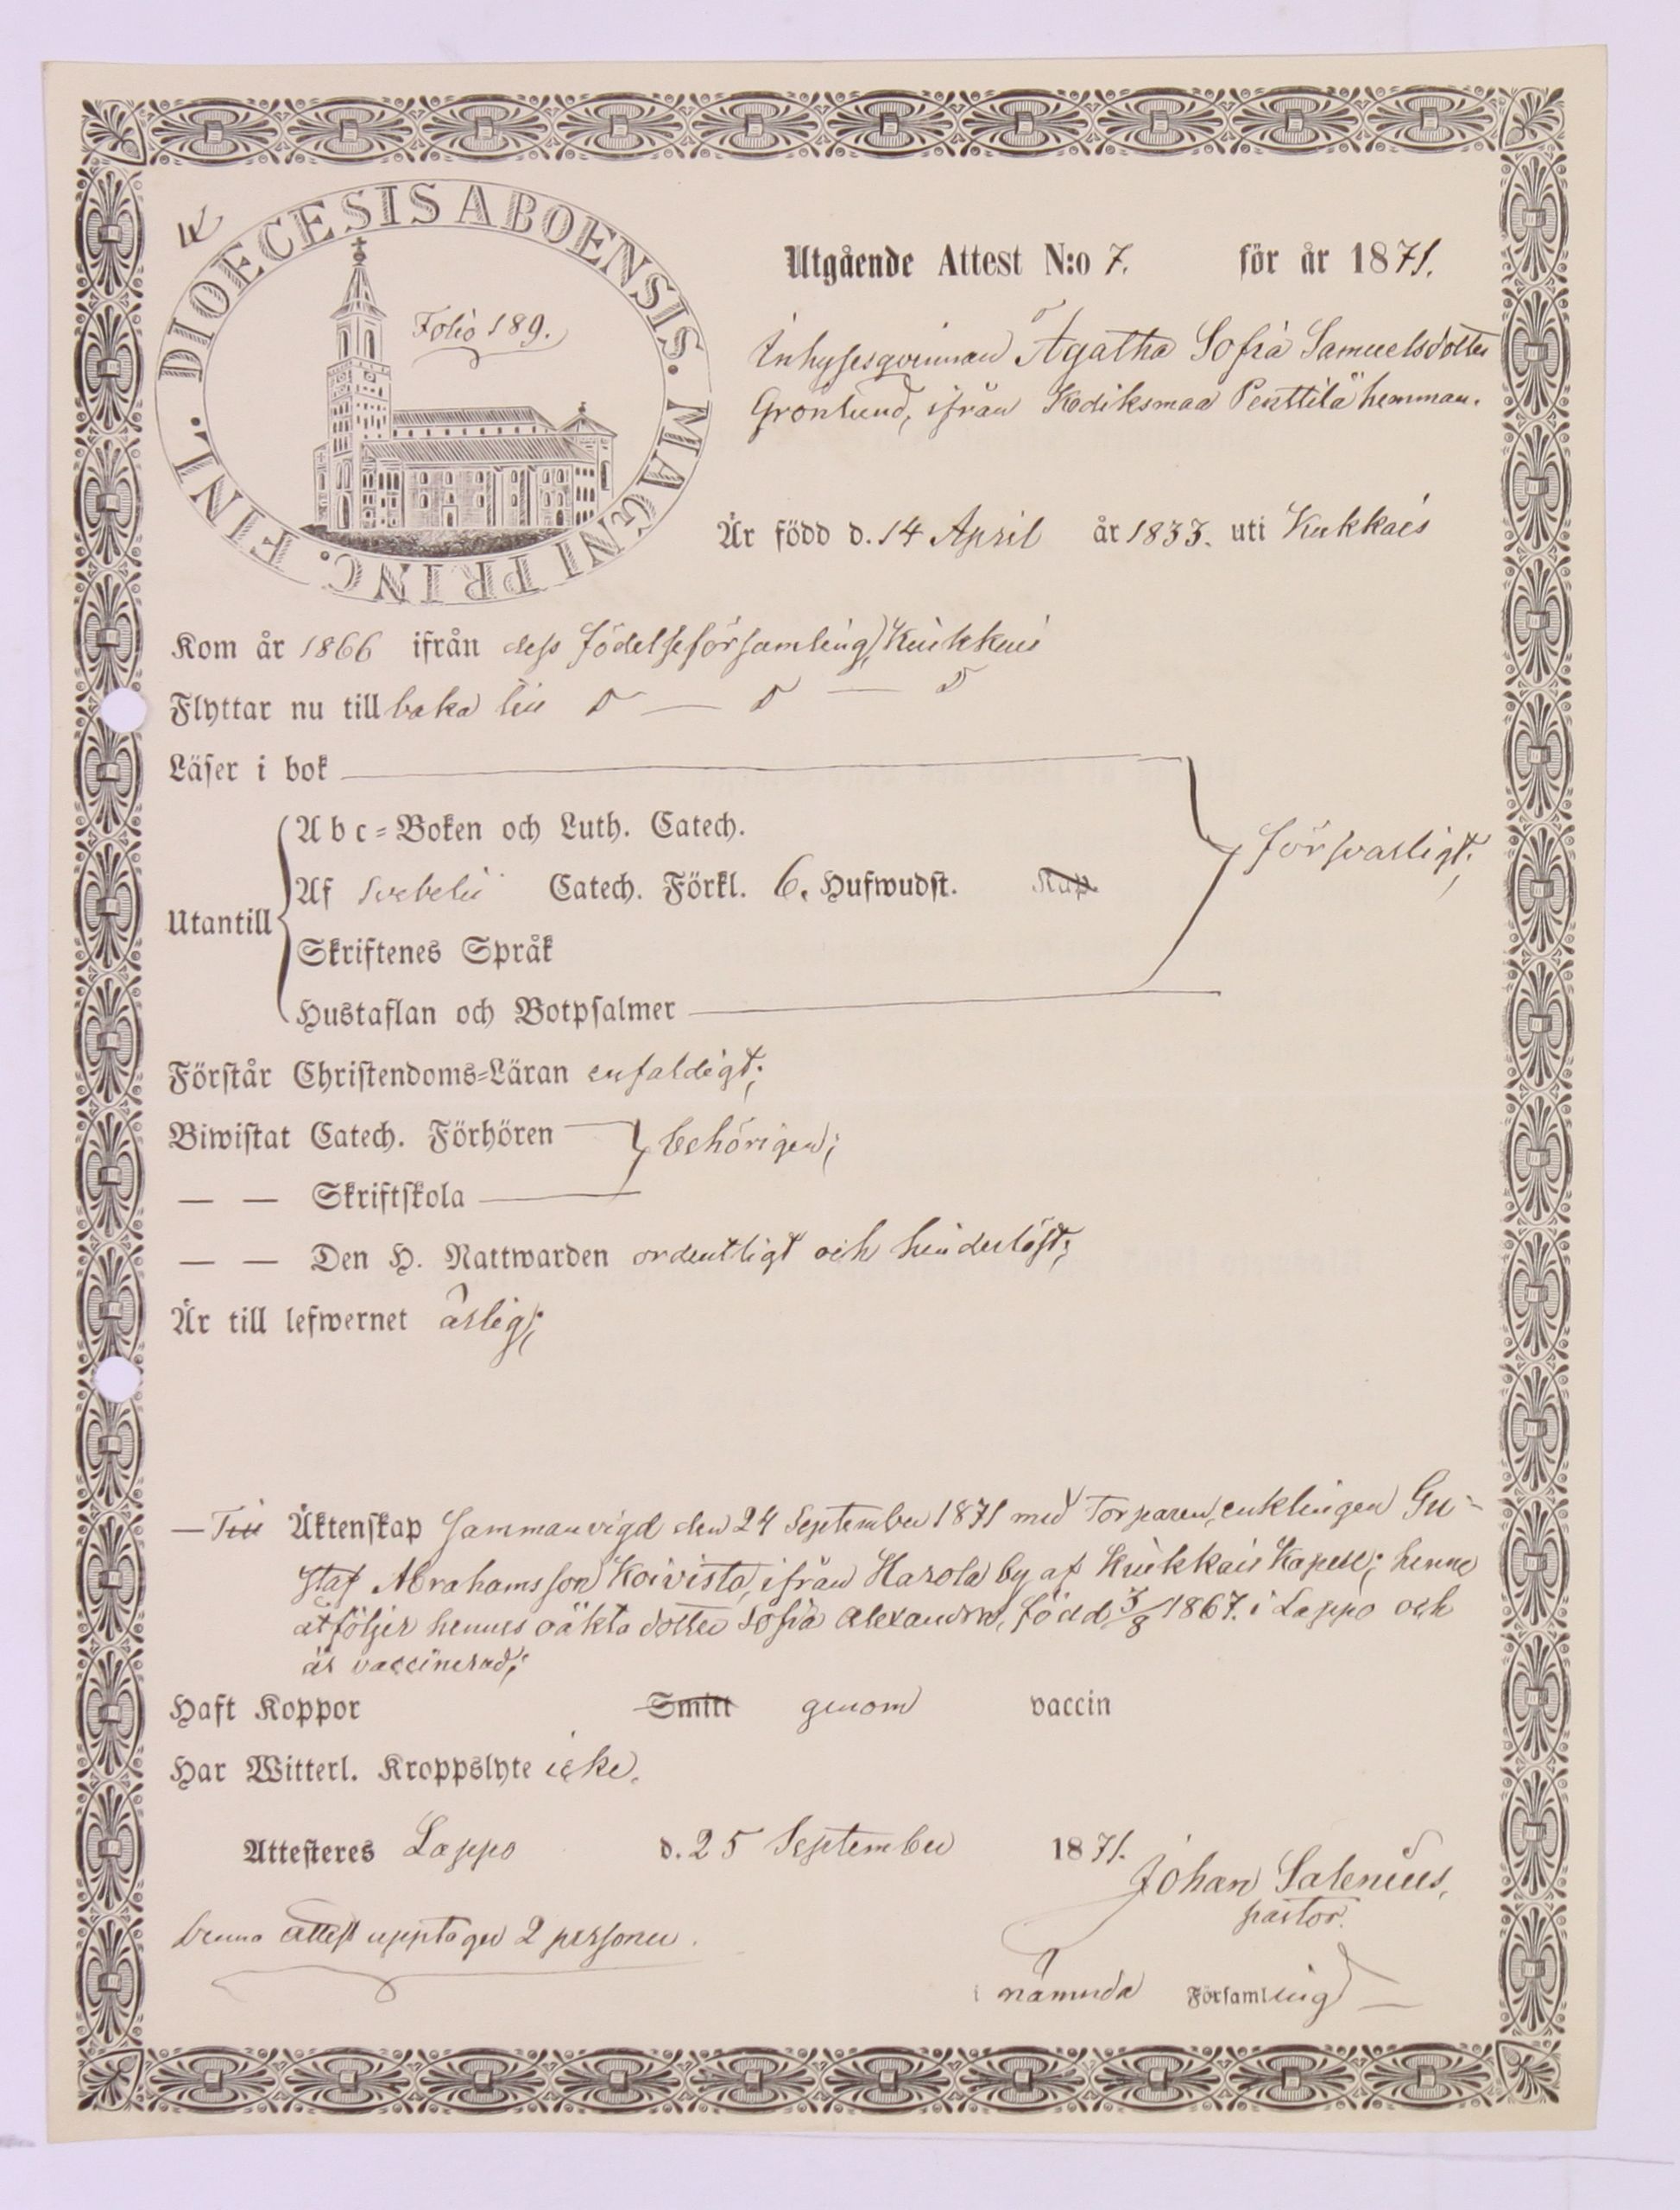 DIOECESIS ABOENSIS. MAGNI PRINC. FINL.
Folio 189.
Utgående Attest N:o 7. för år 1871.
Inhysesqvinnan Agatha Sofia Samuelsdotter
Grönlund, ifrån Kodiksmaa Penttilä hemman.
Är född d. 14 April år 1833. uti Kiukkais
Kom år 1866 ifrån dess födelseförsamling, Kiukkais
Flyttar nu till baka till D — D — D
Läser i bok
Abc-Boken och Luth. Catech.
försvarligt;
Af Svebelii Catech. Förkl. 6. Hufwudst. Kap.
Utantill
Skriftenes Språk
Hustaflan och Botpsalmer
Förstår Christendoms-Läran enfaldigt;
Biwistat Catech. Förhören behörigen;
— — Skriftskola
— — Den H. Nattwarden ordentligt och hinderlöst;
Är till lefwernet ärlig;
— Till Äktenskap sammanvigd den 24 September 1871 med Torparen, enklingen Gu-
staf Abrahamsson Koivisto, ifrån Harola by af Kiukkais Kapell; henne
åtföljer hennes oäkta dotter Sofia Alexandra, född 3/8 1867. i Lappo och
är vaccinerad;
Haft Koppor Smitt genom vaccin
Har Witterl. Kroppslyte icke.
Attesteres Lappo d. 25 September 1871.
Johan Salenius,
pastor.
Denna attest upptager 2 personer.
i nämnda Församling